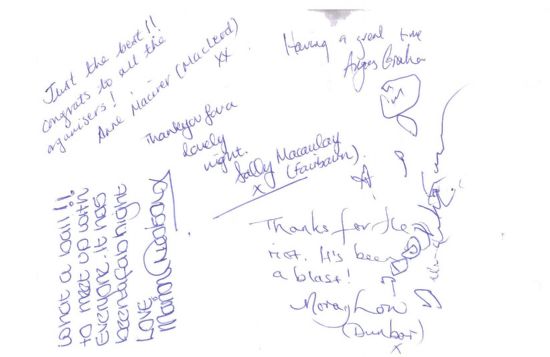 Just the best!!
congrats to all the
organisers!
Anne Maciver (Macleod)
xx
Having a great time
Angus Graham
Thankyou for a
lovely
night.
Sally Macaulay
(Fairbairn)
x
Thanks for the
riot. It's been
a blast!
Morag Low
(Dunbar)
x
What a ball!!
to meet up with
everyone. It has
been a fab night
Love
Marion